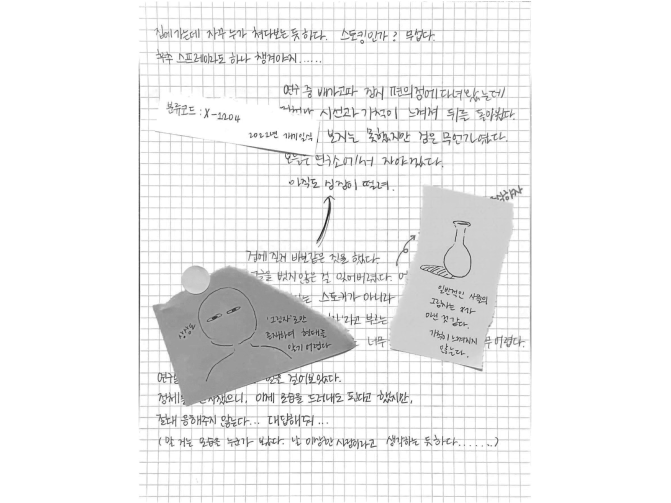 집에 가는데 자꾸 누가 쳐다보는 듯하다. 스토킹인가? 무섭다.
호신 스프레이라도 하나 챙겨야지......
연구 중 배가 고파 잠시 편의점에 다녀왔는데
시선과 기척이 느껴져 뒤를 돌아봤다.
보지는 못했지만 검은 무언가였다.
오늘은 연구소에서 자야겠다.
아직도 심장이 떨려.
분류코드 : X-1204
2022년 개기일식
겁에 질려 바보같은 짓을 했다
벗지 않은 걸 잊어버렸다.
는 스토커가 아니라
라고 부르는
너무
어렵다.
상상도
'그림자'로만
존재하며 형태를
알기 어렵다
일반적인 사물의
그림자는 X가
아닌 것 같다.
기척이 느껴지지
않는다.
걸어보았다.
정체를 들켰으니, 이제 모습을 드러내도 된다고 했지만,
절대 응해주지 않는다... 대답해줘...
(말 거는 모습을 누군가 봤다. 날 이상한 사람이라고 생각하는 듯하다......)